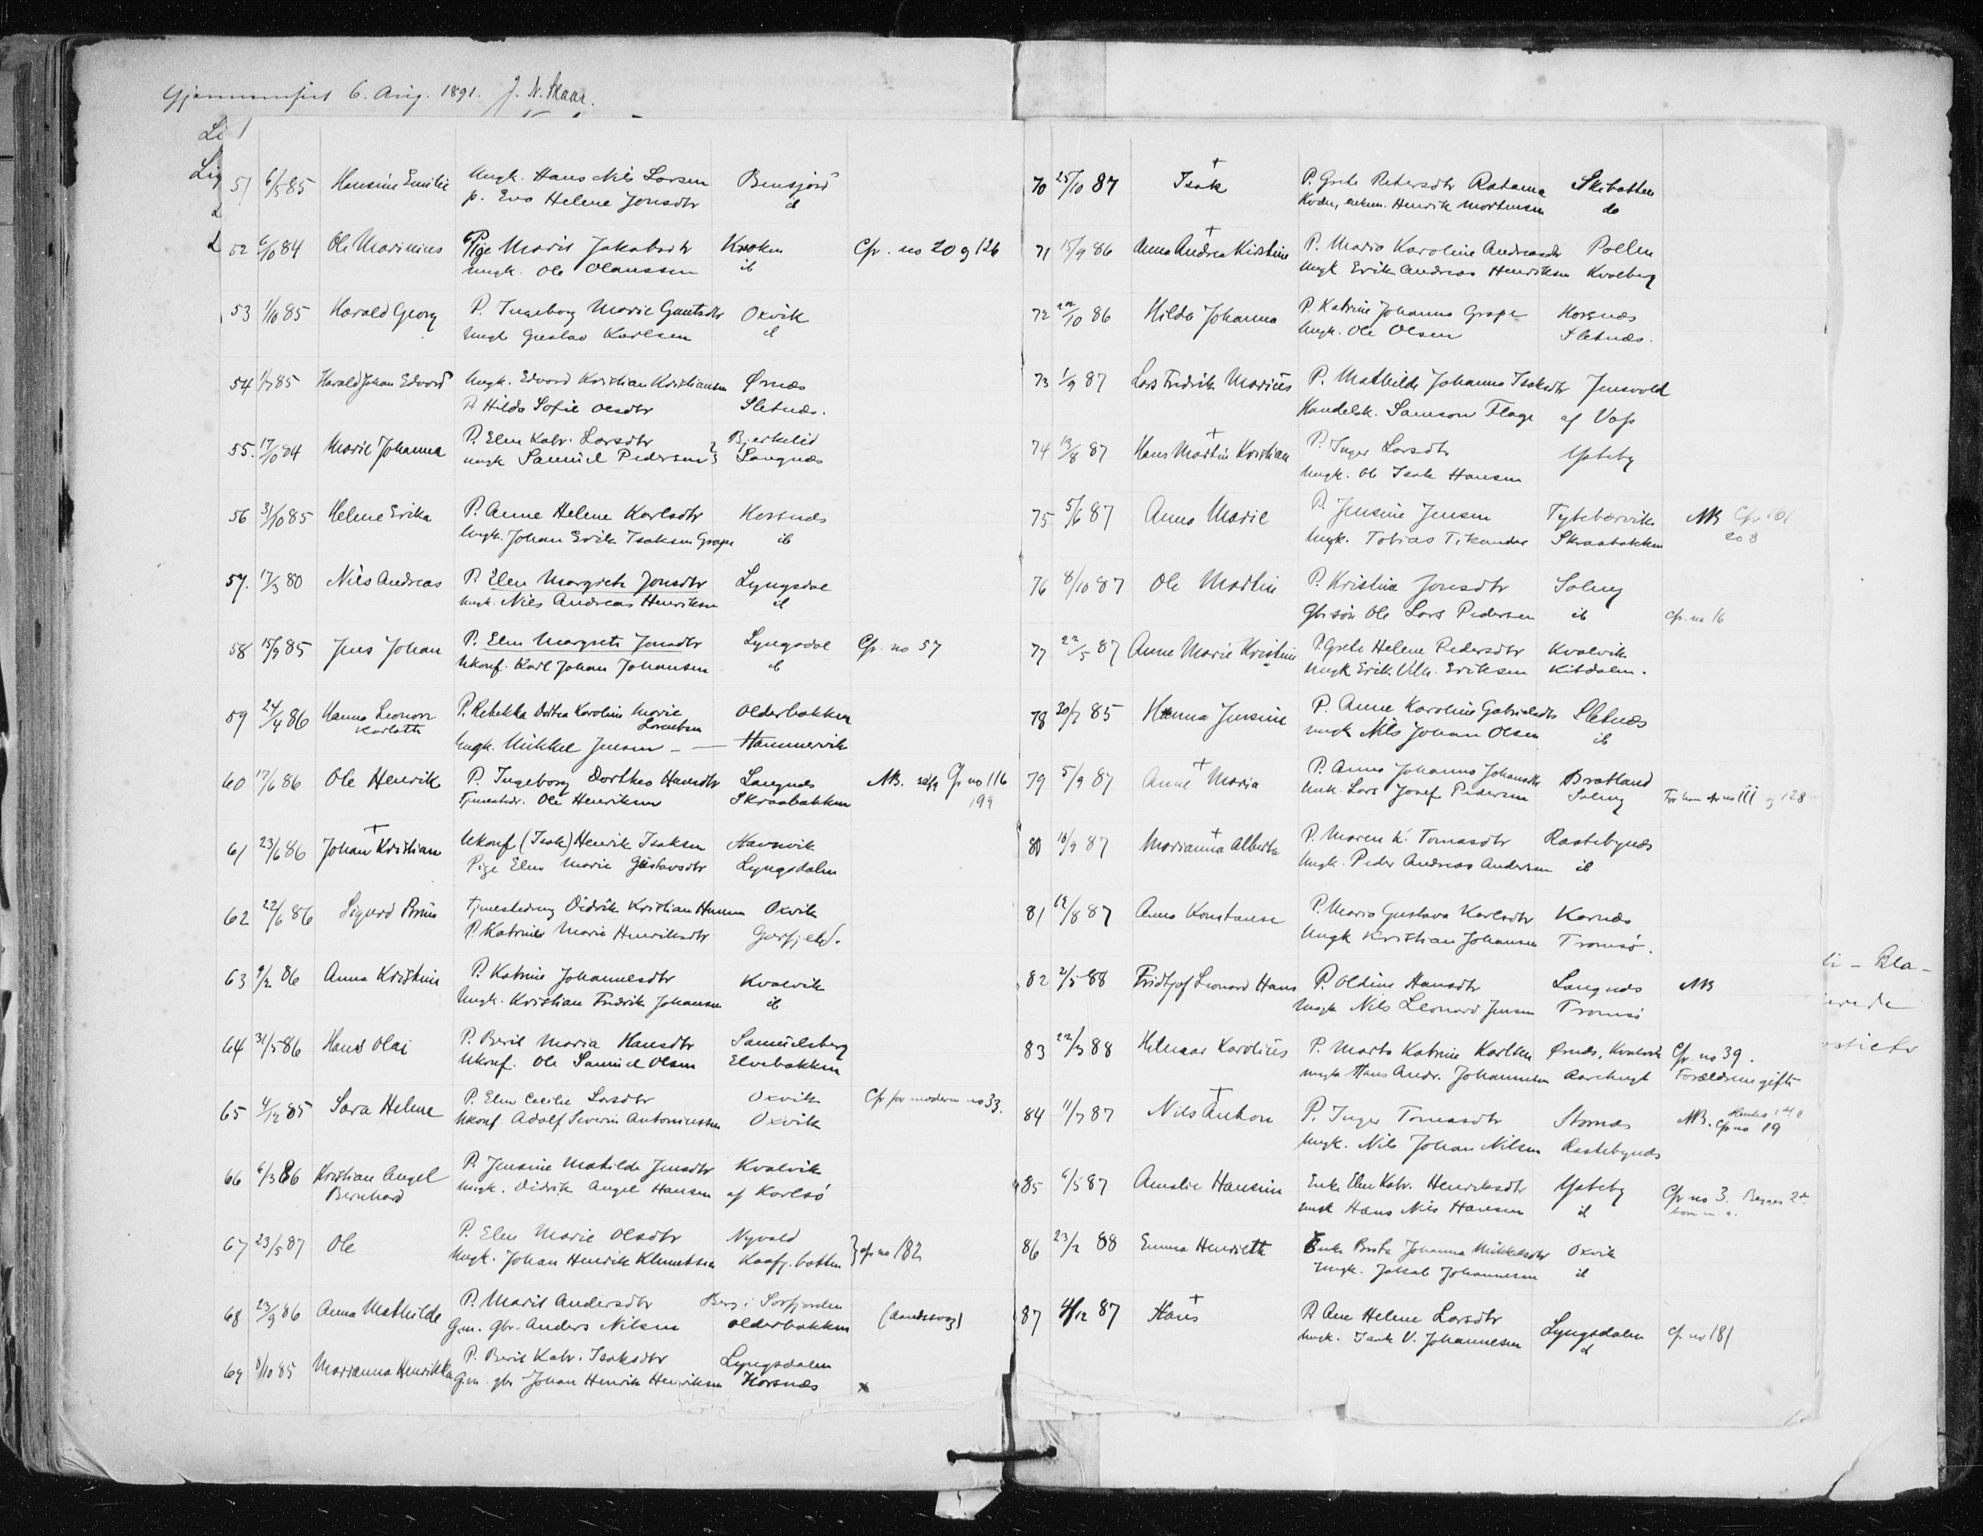 Gjennemseet 6. Aug. 1891. J. N. Skaar.
51 6/5 85 Hansine Emilie Ungk. Hans Nils Larsen Bensjord
p. Eva Helene Jonsdtr id
52 84 Ole Marinius Pige Marit Jakobsdtr Kroken Cfr. no 20 g 126
Ungk. Ole Olaussen ib
53 1/10 85 Harald Georg P. Ingeborg Marie Gautsdtr Oxvik
Ungk Gustav Karlsen il
54 85 Harald Johan Edvard Ungk. Edvard Kristian Kristiansen Ørnæs
P. Hilda Sofie Olsdtr Sletnæs.
55. 17/10 84 Marie Johanna P. Elen Katr. Larsdtr } Bjerkelid
ungk Samuel Pedersen Langnæs
56 31/10 85 Helene Erika P. Anne Helene Karlsdtr Horsnæs
Ungk. Johan Erik Isaksen Grape ib
57. 17/3 80 Nils Andreas P. Elen Margrete Jonsdtr Lyngsdal
Ungk. Nils Andreas Henriksen il
58 15/9 85 Jens Johan P. Elen Margrete Jonsdtr Lyngsdal Cfr. no 57
Ukonf. Karl Johan Johansen il
59 24/4 86 Hanna Leonora P. Rebekka Dortea Karoline Marie Olderbakken
Karlotte Lorentsen
Ungk. Mikkel Jensen - — Hammervik
60 17/6 86 Ole Henrik P. Ingeborg Dorthea Hansdtr Langnæs NB. Cfr no 116
Tjenestedr. Ole Henriksen Skraabakken 199
61 23/6 86 Johan + Kristian Ukonf. (Isak) Henrik Isaksen Havnvik
Pige Elen Marie Gustavsdtr Lyngsdalen
62 22/6 86 Sigurd Tjenestedreng Didrik Kristian Hansen Oxvik
P. Katrine Marie Henriksdtr Goxfjeld.
63 9/2 86 Anna Kristine P. Katrine Johannesdtr Kvalvik
Ungk. Kristian Fredrik Johansen ib
64 31/5 86 Hans Olai P. Berit Maria Hansdtr Samuelsberg
Ukonf. Ole Samuel Olsen Elvebakken
65 4/12 85 Sara Helene P. Elen Cecilie Larsdtr Oxvik Cfr for moderen no 33.
Ukonf Adolf Severin Antoniussen Oxvik
66 6/3 86 Kristian Angel P. Jensine Matilde Jensdtr Kvalvik
Bernhard Ungk. Didrik Angel Hansen af Karlsö
67 23/5 87 Ole P. Elen Marie Olsdtr Nyvold } cfr no 182
Ungk. Johan Henrik Klemetsen Kaafj.botten
68 23/9 86 Anna Mathilde P. Marit Andersdtr Berg i Sorfjorden
G.m. gbr. Anders Nilsen Olderbakken
69 8/10 85 Marianna Henrikka P. Berit Katr. Isaksdtr Lyngsdalen
G.m. gbr Johan Henrik Henriksen Horsnæs x
70 25/10 87 Isak + P. Grete Petersdtr Ratama Skibotten
Kvæn, enkem. Henrik Mortensen do
71 15/9 86 Anna Andrea + Kirstine P. Maria Karoline Andreasdtr Pollen
Ungk Erik Andreas Henriksen Kvalberg
72 22/10 86 Hilda Johanna P. Katrine Johanna Grape Horsnæs
Ungk. Ole Olsen Sletnæs.
73 1/9 87 Lars Fredrik Marius P. Mathilde Johanna Isaksdtr Jensvold
Handelsk. Samson Flage af Voss
74 13/8 87 Hans Martin + Kristian P. Inger Larsdtr Ysteby
Ungk. Ole Isak Hansen
75 5/6 87 Anna Marie P. Jensine Jensen Tytebærvik NB Cfr 161
Ungk. Tobias Tikander Skraabakken 208
76 8/10 87 Ole Martin P. Kristine Jonsdtr Soleng
Gbrsön Ole Lars Pedersen ib cfr. no 16
77 22/5 87 Anne Marie Kristine P. Grete Helene Pedersdtr Kvalvik
Ungk Erik Eriksen Kitdalen.
78 30/7 85 Hanna Jensine P. Anne Karoline Gabrielsdtr Sletnæs
ungk Nils Johan Olsen ib
79 5/9 87 Anne + Maria P. Anna Johanna Johansdtr Bratland
Unk. Lars Josef Pedersen Soleng og 128
80 10/9 87 Marianna + Alberta P. Maren K. Tomasdtr Rastebynæs
Ungk. Peder Andreas Andersen ib
81 12/8 87 Anna Konstanse P. Maria Gustava Karlsdtr Karnæs
Ungk Kristian Johansen Tromsö.
82 2/5 88 Fridtjof Leonard Hans P. Oldine Hansdtr Langnæs NB
Ungk Nils Leonard Jensen Tromsö
83 22/3 88 Hilmar Karolius P. Marta Katrine Karlsen Ørnæs, Kvalvik Cfr. no 39.
ungk Hans Andr. Johannesen Forældrene gift
84 11/7 87 Nils + Anton P. Inger Tomasdtr Stornæs NB. Cfr no 19
Ungk. Nils Johan Nilsen Rastebynæs
85 6/5 87 Amalie Hansine Enke Elen Katr. Henriksdtr Ysteby Cfr no 3. Begges 2det
ungk Hans Nils Hansen il
86 23/2 88 Emma Henriette Enke Berta Johanna Mikkelsdtr Oxvik
Ungk. Jakob Johannesen il
87 4/12 87 Hans + P. Ane Helene Larsdtr Lyngsdalen cf. no 181
Ungk. Isak V. Johannesen il